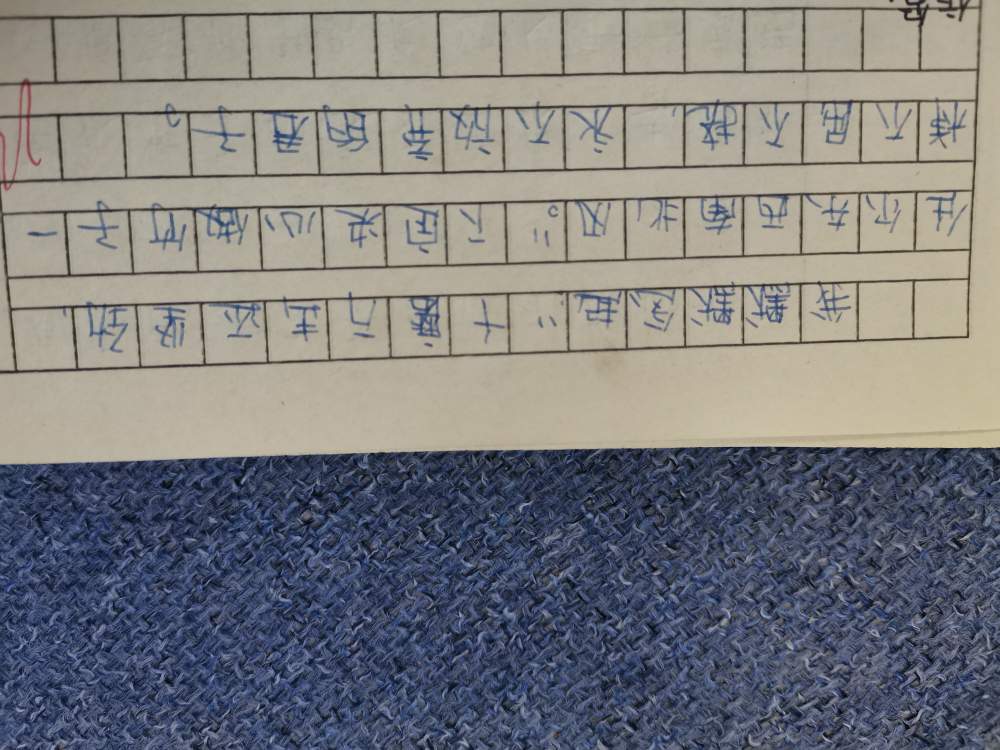 我默默念起:"千磨万击还坚劲,
任尔东西南北风。"下定决心做竹子一
样不屈不挠,永不放弃的君子。